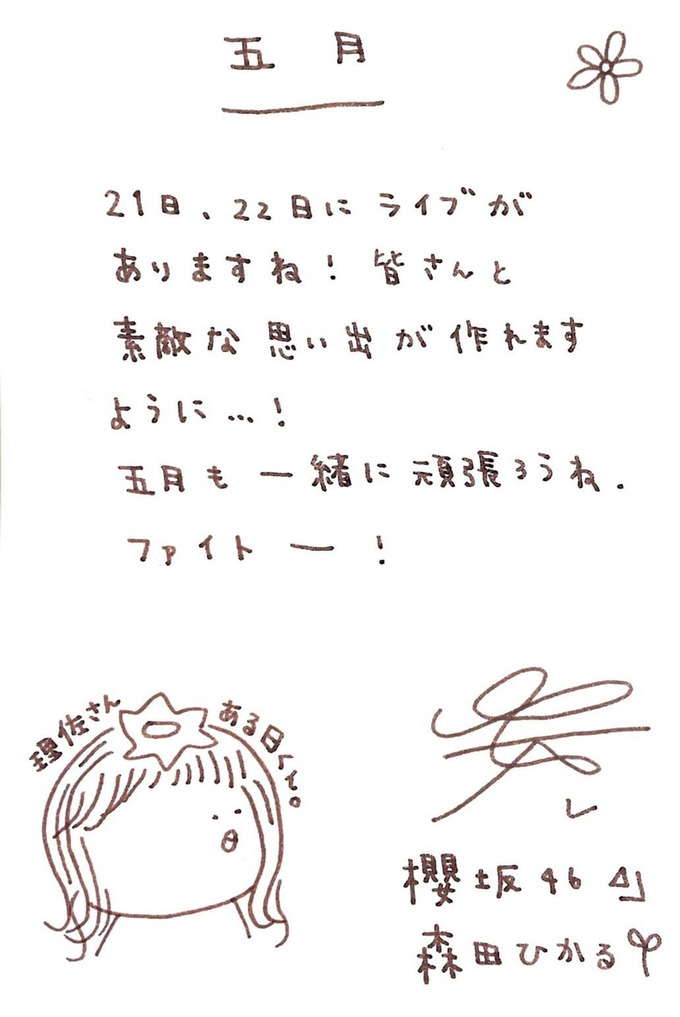 五月
21日、22日にライブが
ありますね！皆さんと
素敵な思い出が作れます
ように…！
五月も一緒に頑張ろうね.
ファイトー！
理佐さん
ある日くと。
櫻坂46
森田ひかる